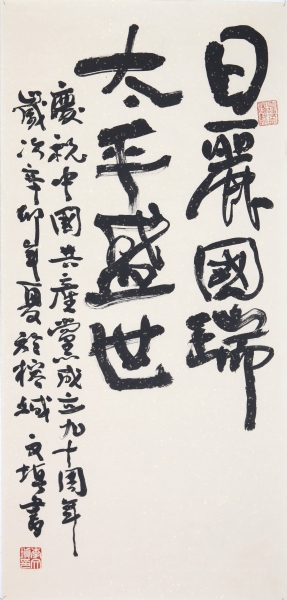 日麗國瑞
太平盛世
慶祝中國共產黨成立九十周年
歲次辛卯年夏於榕城 文埤書